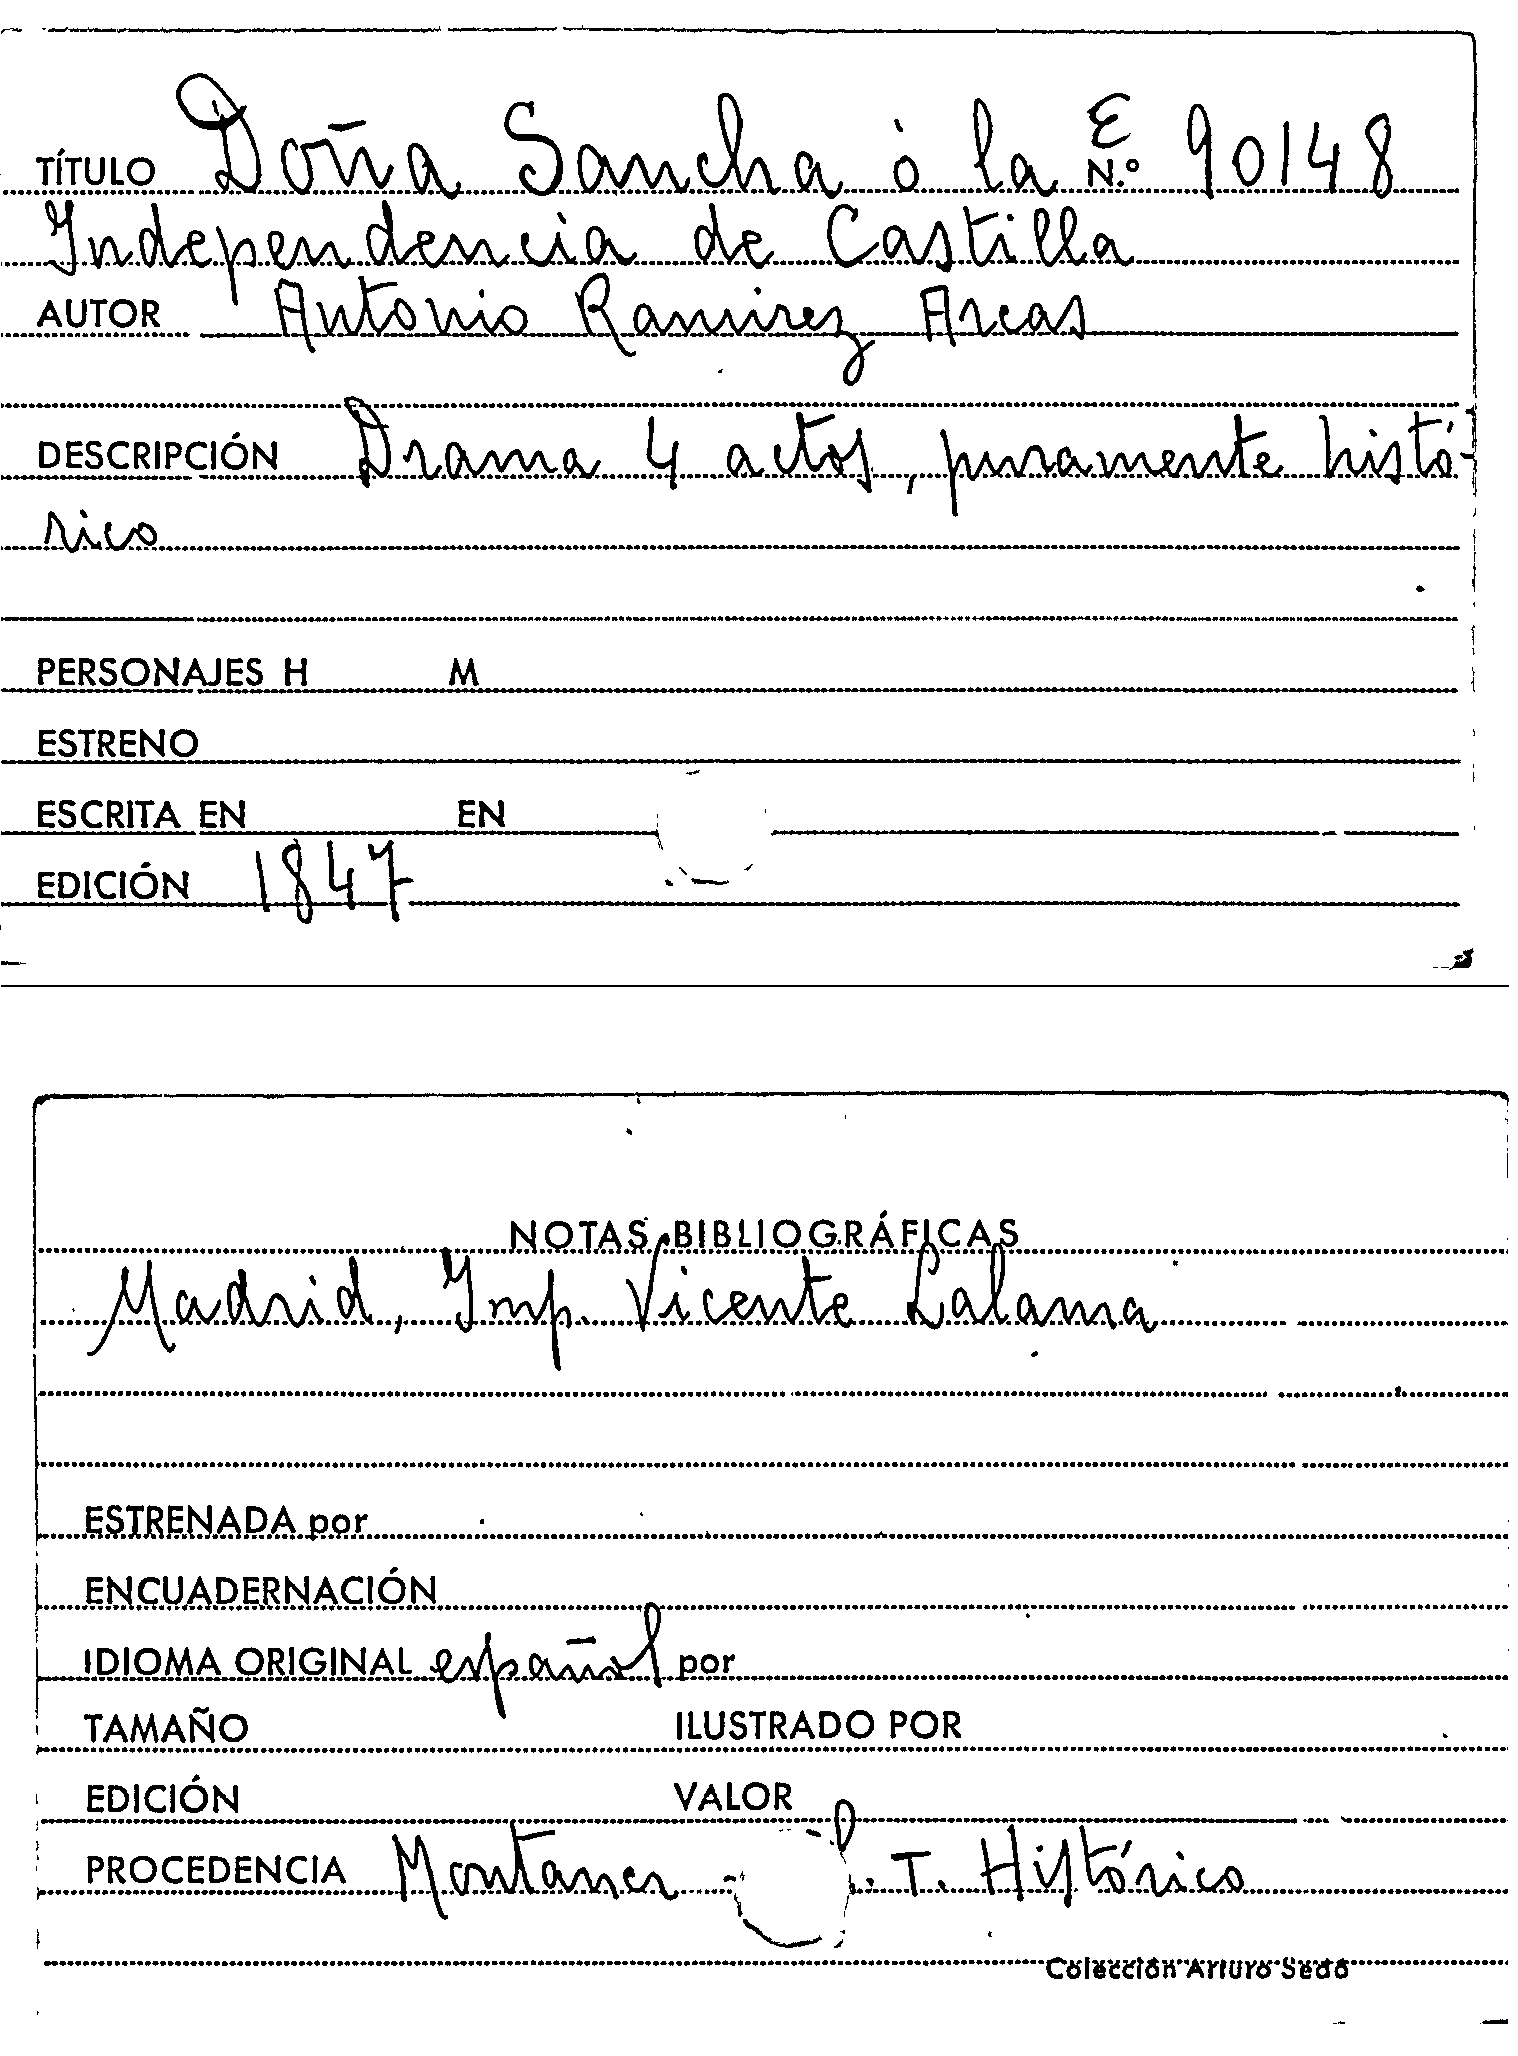 E
TÍTULO Doña Sancha ò la N.º 90148
Independencia de Castilla
AUTOR Antonio Ramirez Arcas
DESCRIPCIÓN Drama 4 actos, puramente histó-
rico
PERSONAJES H M
ESTRENO
ESCRITA EN EN
EDICIÓN 1847
NOTAS BIBLIOGRÁFICAS
Madrid, Imp. Vicente Lalama
ESTRENADA por
ENCUADERNACIÓN
IDIOMA ORIGINAL español por
TAMAÑO ILUSTRADO POR
EDICIÓN VALOR
PROCEDENCIA Montaner T. Histórico
Colección Arturo Sedó